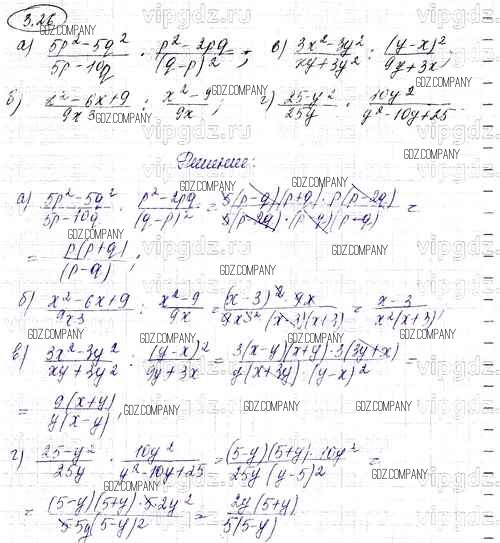 3.26
а) (5p²-5q²)/(5p-10q) · (p²-2pq)/(q-p)²; в) (3x²-3y²)/(xy+3y²) : (y-x)²/(9y+3x);
б) (x²-6x+9)/(9x³) : (x²-9)/(9x); г) (25-y²)/(25y) · (10y²)/(y²-10y+25).
Решение:
а) (5p²-5q²)/(5p-10q) · (p²-2pq)/(q-p)² = (5(p-q)(p+q)·p(p-2q))/(5(p-2q)·(p-q)(p-q)) =
= p(p+q)/(p-q);
б) (x²-6x+9)/(9x³) : (x²-9)/(9x) = ((x-3)²·9x)/(9x³·(x-3)(x+3)) = (x-3)/(x²(x+3));
в) (3x²-3y²)/(xy+3y²) : (y-x)²/(9y+3x) = (3(x-y)(x+y)·3(3y+x))/(y(x+3y)·(y-x)²) =
= 9(x+y)/(y(x-y));
г) (25-y²)/(25y) · (10y²)/(y²-10y+25) = ((5-y)(5+y)·10y²)/(25y(y-5)²) =
= ((5-y)(5+y)·5·2y²)/(5·5y(5-y)²) = 2y(5+y)/(5(5-y))
GDZ.COMPANY
vipgdz.ru